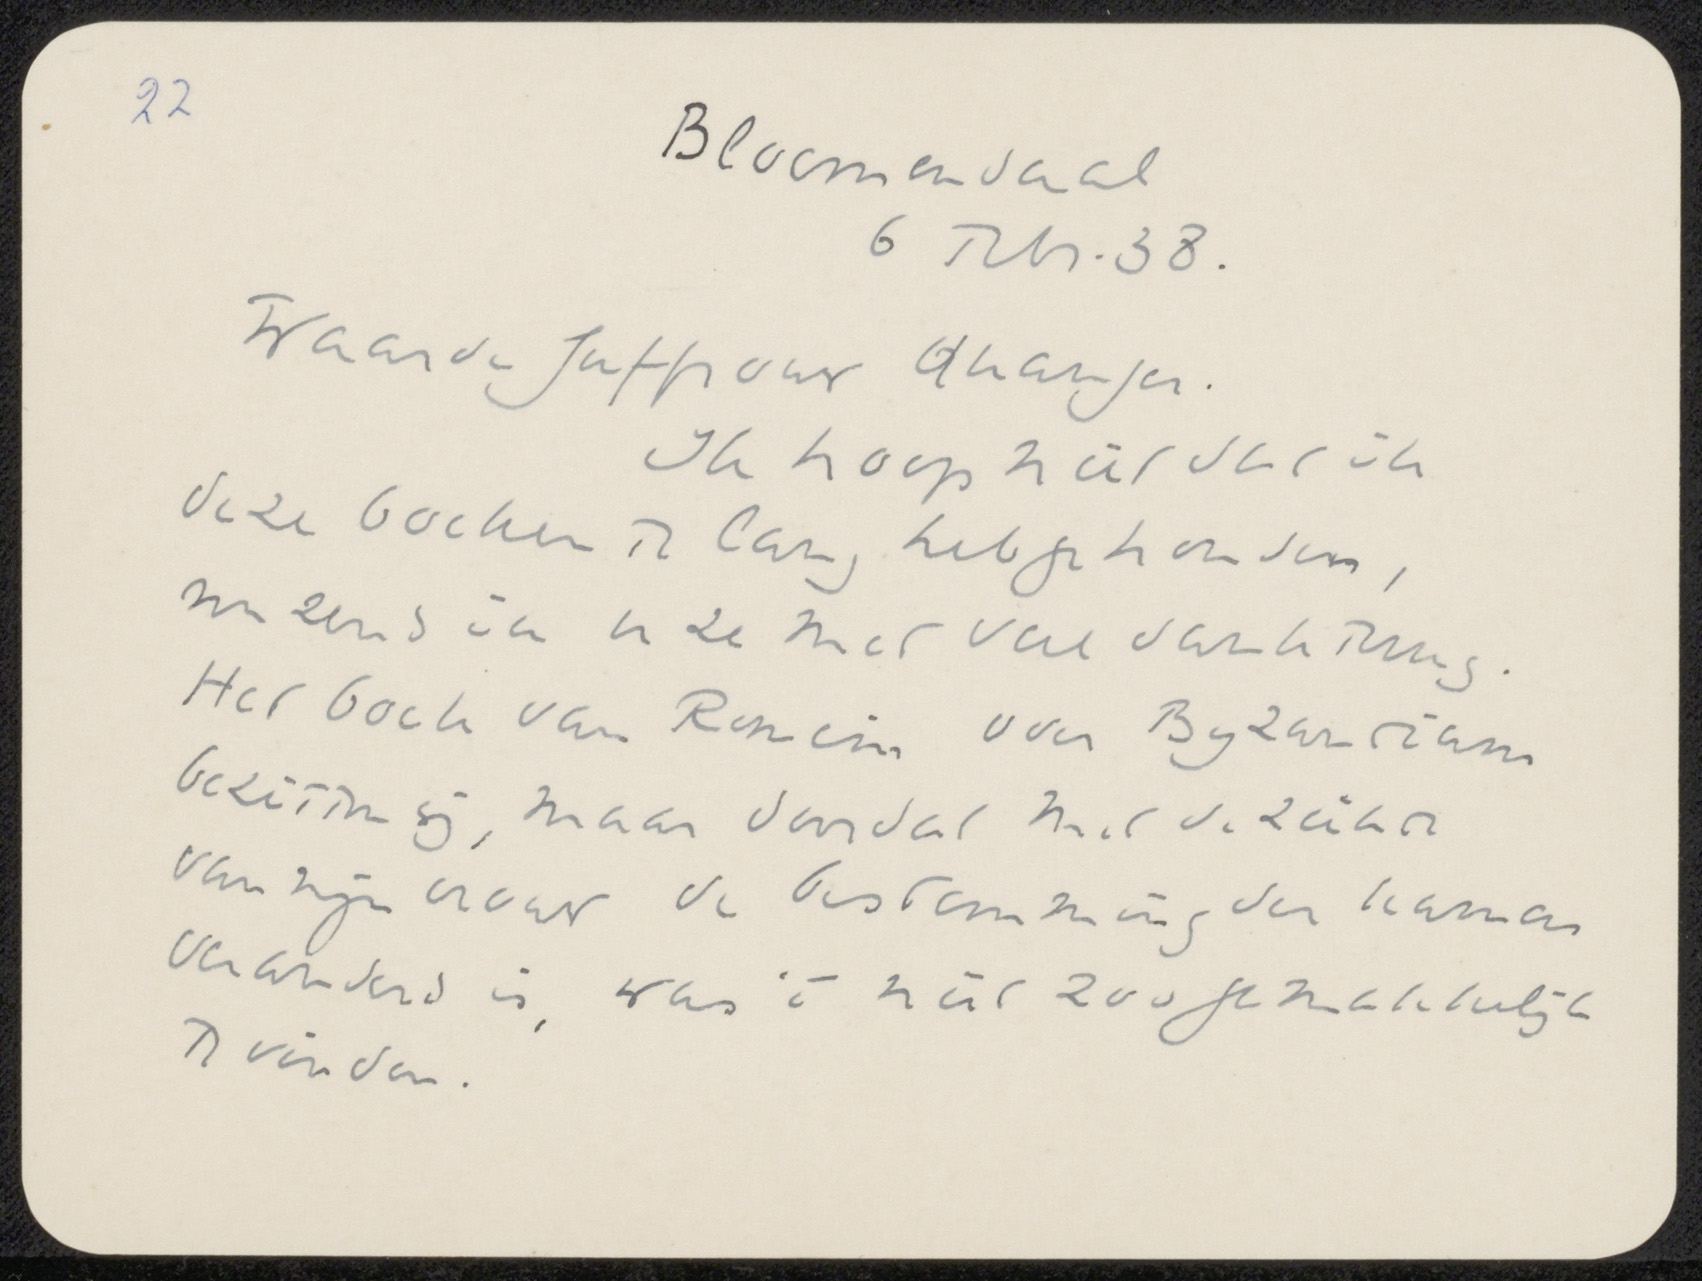 22
Bloemendaal
6 Febr. 38.
Waarde Juffrouw
Ik hoop niet dat ik
deze boeken te lang heb gehouden,
nu zend ik u ze met veel dank terug.
Het boek van Romein over Byzantium
bezitten wij, maar doordat met de ziekte
van mijn vrouw de bestemming der kamers
veranderd is, was 't niet zoo gemakkelijk
te vinden.